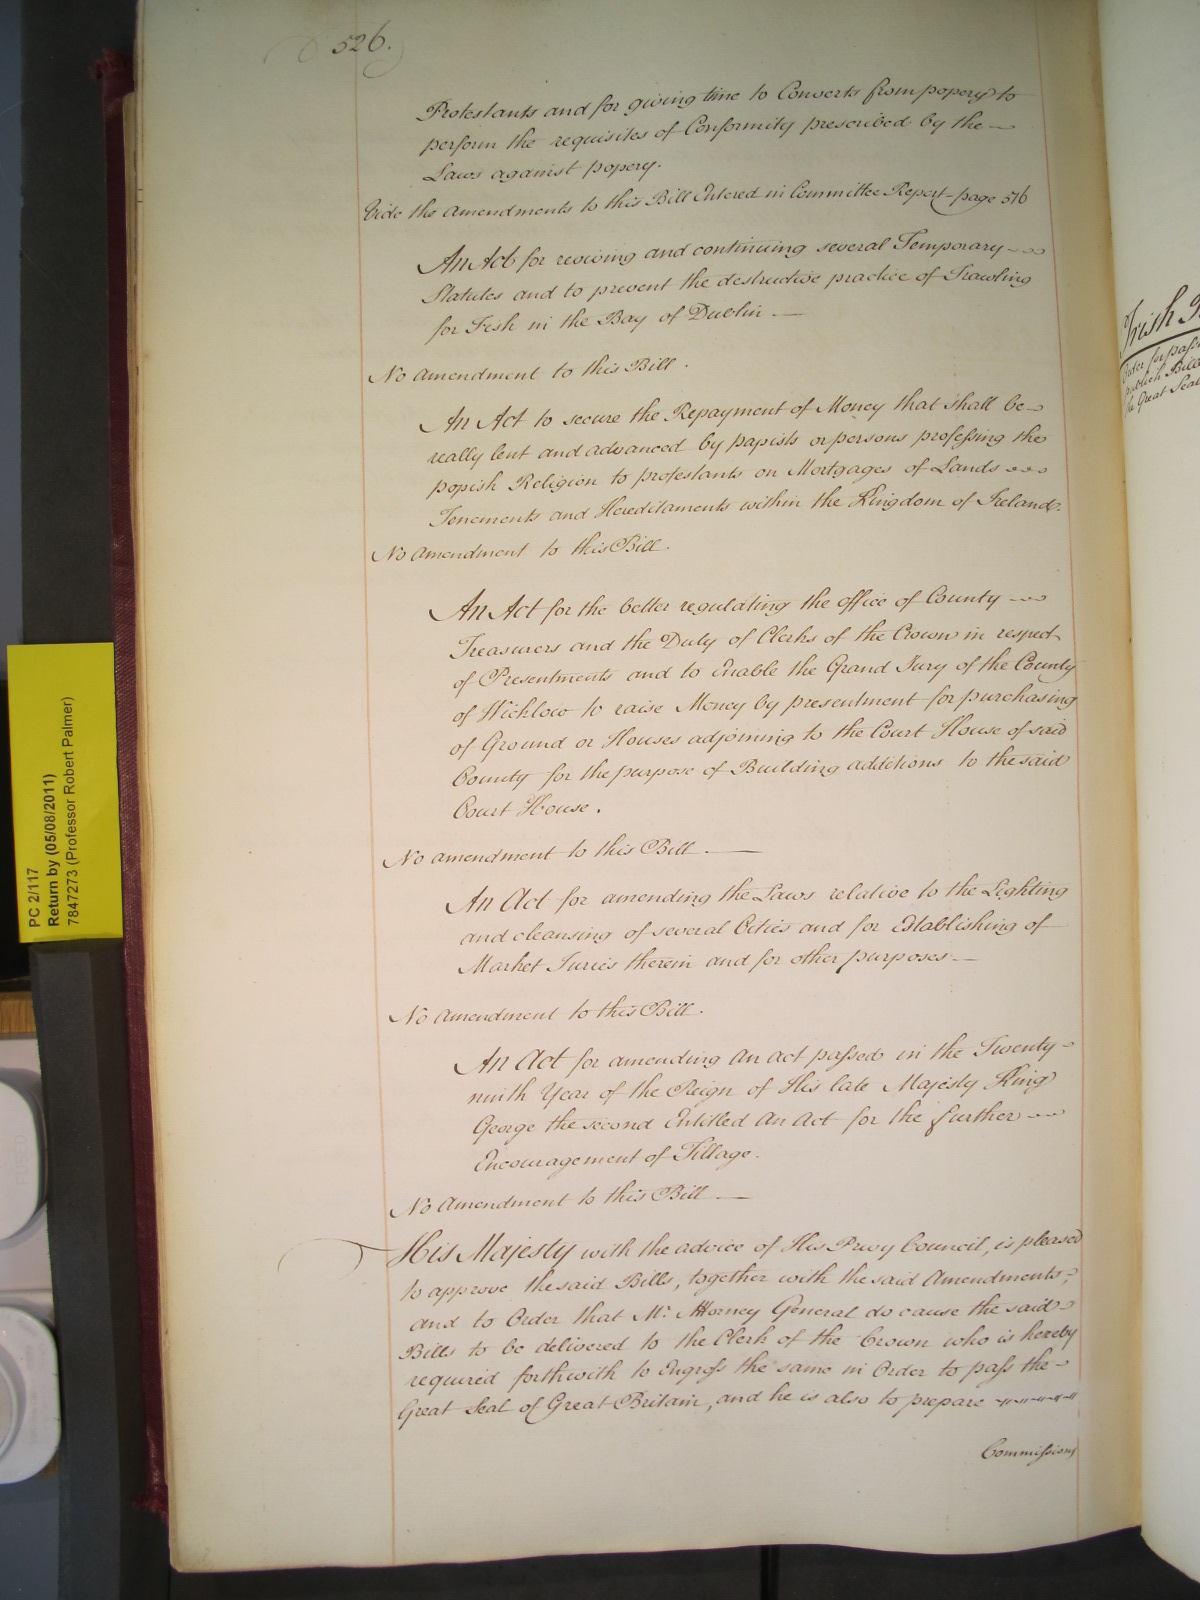 526.
Protestants and for giving time to Converts from popery to
perform the requisites of Conformity prescribed by the
Laws against popery.
Vide the amendments to this Bill Entered in Committee Report - page 516
An Act for reviving and continuing several Temporary
Statutes and to prevent the destructive practice of Trawling
for Fish in the Bay of Dublin —
No amendment to this Bill.
An Act to secure the Repayment of Money that shall be
really lent and advanced by papists or persons professing the
popish Religion to protestants on Mortgages of Lands
Tenements and Hereditaments within the Kingdom of Ireland.
No amendment to this Bill.
An Act for the better regulating the office of County
Treasurers and the Duty of Clerks of the Crown in respect
of Presentments and to Enable the Grand Jury of the County
of Wicklow to raise Money by presentment for purchasing
of Ground or Houses adjoining to the Court House of said
County for the purpose of Building additions to the said
Court House.
No amendment to this Bill —
An Act for amending the Laws relative to the Lighting
and cleansing of several Cities and for Establishing of
Market Juries therein and for other purposes —
No amendment to this Bill.
An Act for amending an act passed in the Twenty-
ninth Year of the Reign of His late Majesty King
George the second Entitled An Act for the further
Encouragement of Tillage.
No Amendment to this Bill —
His Majesty with the advice of His Privy Council, is pleased
to approve the said Bills, together with the said Amendments,
and to Order that Mr. Attorney General do cause the said
Bills to be delivered to the Clerk of the Crown who is hereby
required forthwith to Engross the same in Order to pass the
Great Seal of Great Britain, and he is also to prepare
Commissions
PC 2/117
Return by (05/08/2011)
7847273 (Professor Robert Palmer)
Irish
Order for pass
publick Bills
the Great Seal